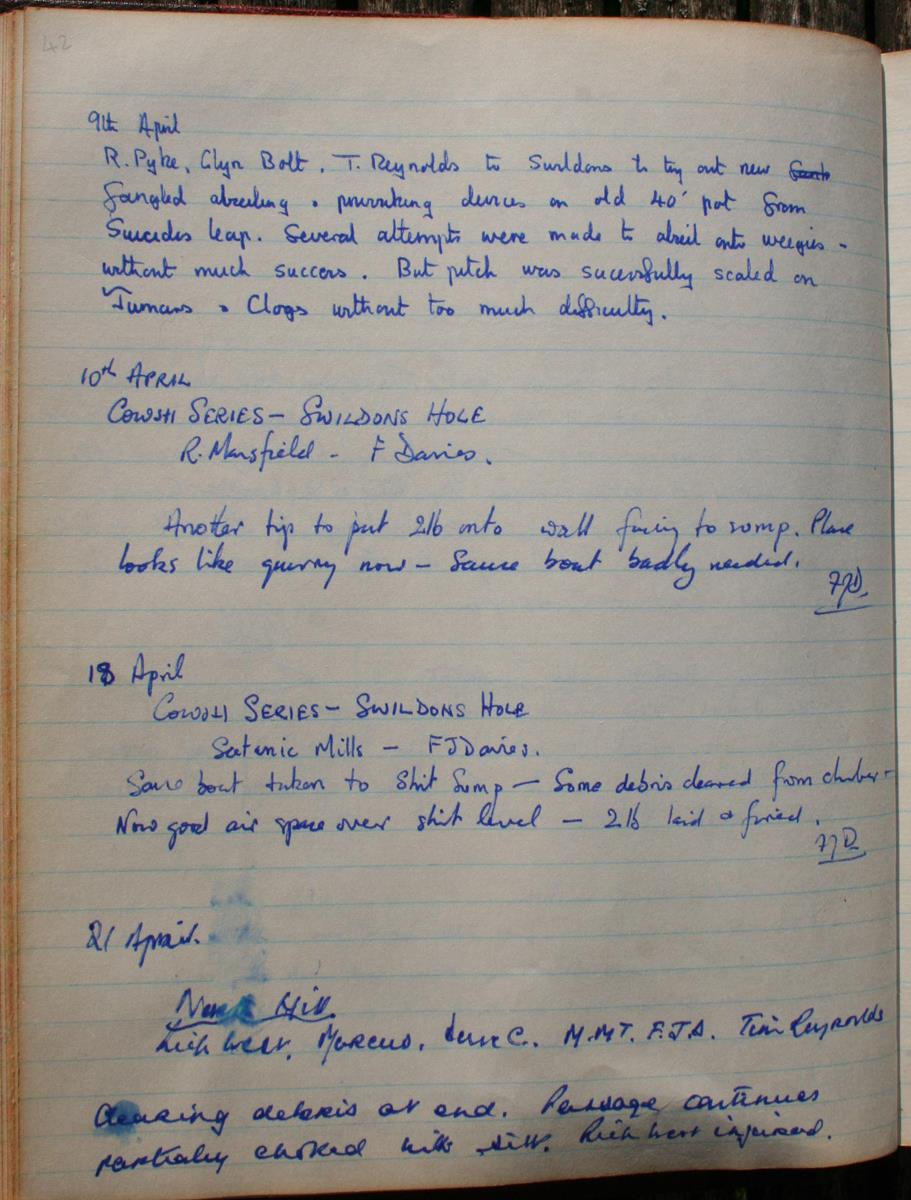 42
9th April
R. Pyke, Glyn Bolt, T. Reynolds to Swildons to try out new
fangled abseiling & prusiking devices on old 40' pot from
Suicides leap. Several attempts were made to abseil onto
without much success. But pitch was sucessfully scaled on
Jumars & Clogs without too much difficulty.
10th APRIL
COWSH SERIES - SWILDONS HOLE
R. Mansfield - F Davies.
Another trip to put 2lb onto wall facing to sump. Place
looks like quarry now - Sauce boat badly needed.
FJD.
18 April
COWSH SERIES - SWILDONS HOLE
Satanic Mills - FJDavies.
boat taken to Shit Sump - Some debris cleared from chamber -
Now good air space over shit level - 2lb laid & fired.
FJD
21 April.
Hill
Rich West, Marcus, Dave C. M.M.T. F.J.D. Tim Reynolds
Clearing debris at end. Passage continues
partially choked with silt. Rich West injured.